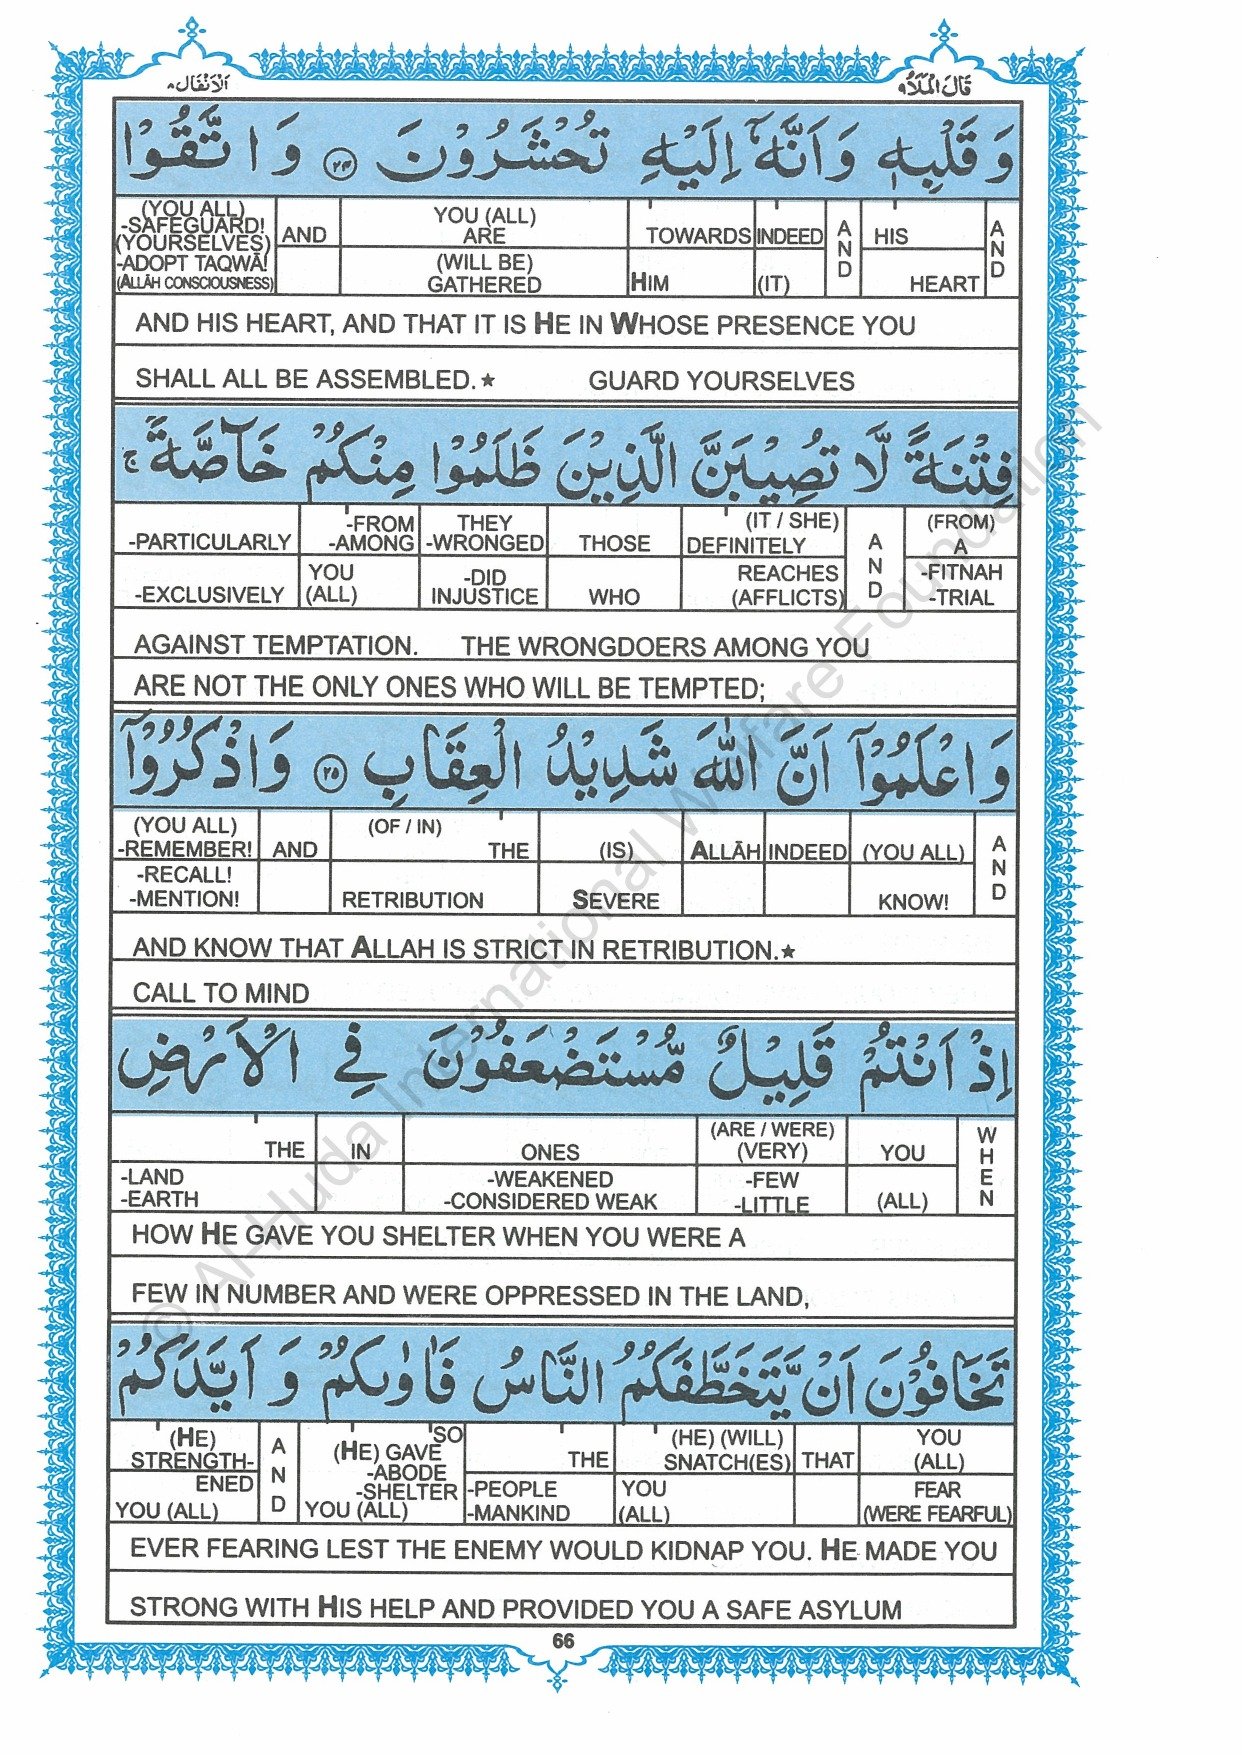 اَلْاَنْفَال ٨
قَالَ الْمَلَاُ ٩
وَ قَلْبِهٖ وَ اَنَّهٗۤ اِلَيْهِ تُحْشَرُوْنَ ﴿٢٤﴾ وَ اتَّقُوْا
AND
HIS HEART
AND
INDEED (IT)
TOWARDS HIM
YOU (ALL) ARE (WILL BE) GATHERED
AND
(YOU ALL) -SAFEGUARD! (YOURSELVES) -ADOPT TAQWĀ! (ALLĀH CONSCIOUSNESS)
AND HIS HEART, AND THAT IT IS HE IN WHOSE PRESENCE YOU
SHALL ALL BE ASSEMBLED.★ GUARD YOURSELVES
فِتْنَةً لَّا تُصِيْبَنَّ الَّذِيْنَ ظَلَمُوْا مِنْكُمْ خَآصَّةً ۚ
(FROM) A -FITNAH -TRIAL
AND
(IT / SHE) DEFINITELY REACHES (AFFLICTS)
THOSE WHO
THEY -WRONGED -DID INJUSTICE
-FROM -AMONG YOU (ALL)
-PARTICULARLY -EXCLUSIVELY
AGAINST TEMPTATION. THE WRONGDOERS AMONG YOU
ARE NOT THE ONLY ONES WHO WILL BE TEMPTED;
وَ اعْلَمُوْۤا اَنَّ اللّٰهَ شَدِيْدُ الْعِقَابِ ﴿٢٥﴾ وَاذْكُرُوْۤا
AND
(YOU ALL) KNOW!
INDEED
ALLĀH
(IS) SEVERE
(OF / IN) THE RETRIBUTION
AND
(YOU ALL) -REMEMBER! -RECALL! -MENTION!
AND KNOW THAT ALLAH IS STRICT IN RETRIBUTION.★
CALL TO MIND
اِذْ اَنْتُمْ قَلِيْلٌ مُّسْتَضْعَفُوْنَ فِي الْاَرْضِ
WHEN
YOU (ALL)
(ARE / WERE) (VERY) -FEW -LITTLE
ONES -WEAKENED -CONSIDERED WEAK
IN
THE -LAND -EARTH
HOW HE GAVE YOU SHELTER WHEN YOU WERE A
FEW IN NUMBER AND WERE OPPRESSED IN THE LAND,
تَخَافُوْنَ اَنْ يَّتَخَطَّفَكُمُ النَّاسُ فَاٰوٰىكُمْ وَ اَيَّدَكُمْ
YOU (ALL) FEAR (WERE FEARFUL)
THAT
(HE) (WILL) SNATCH(ES) YOU (ALL)
THE -PEOPLE -MANKIND
SO (HE) GAVE -ABODE -SHELTER YOU (ALL)
AND
(HE) STRENGTH-ENED YOU (ALL)
EVER FEARING LEST THE ENEMY WOULD KIDNAP YOU. HE MADE YOU
STRONG WITH HIS HELP AND PROVIDED YOU A SAFE ASYLUM
66
© Al-Huda International Welfare Foundation